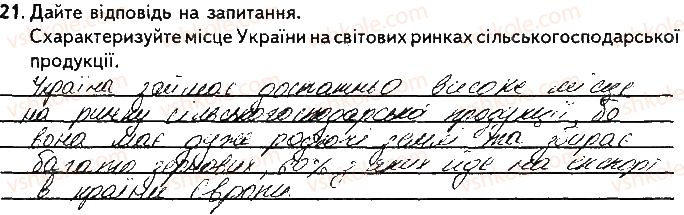 21. Дайте відповідь на запитання.
Схарактеризуйте місце України на світових ринках сільськогосподарської
продукції.
Україна займає достатньо високе місце
на ринку сільськогосподарської продукції, бо
вона має дуже родючі землі та збирає
багато зернових, 60% з яких йде на експорт
в країни Європи.